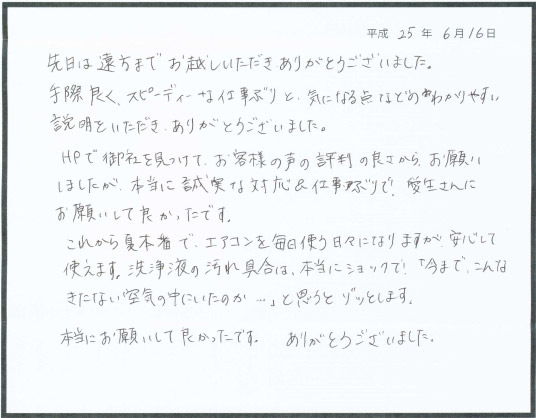 平成 25 年 6月16日
先日は遠方までお越しいただき、ありがとうございました。
手際良く、スピーディーな仕事ぶりと、気になる点などのわかりやすい
説明をいただき、ありがとうございました。
HPで御社を見つけて、お客様の声の評判の良さから、お願い
しましたが、本当に誠実な対応&仕事ぶりで、愛生さんに
お願いして良かったです。
これから夏本番で、エアコンを毎日使う日々になりますが、安心して
使えます。洗浄液の汚れ具合は、本当にショックで!「今まで、こんな
きたない空気の中にいたのか…」と思うとゾッとします。
本当にお願いして良かったです。 ありがとうございました。